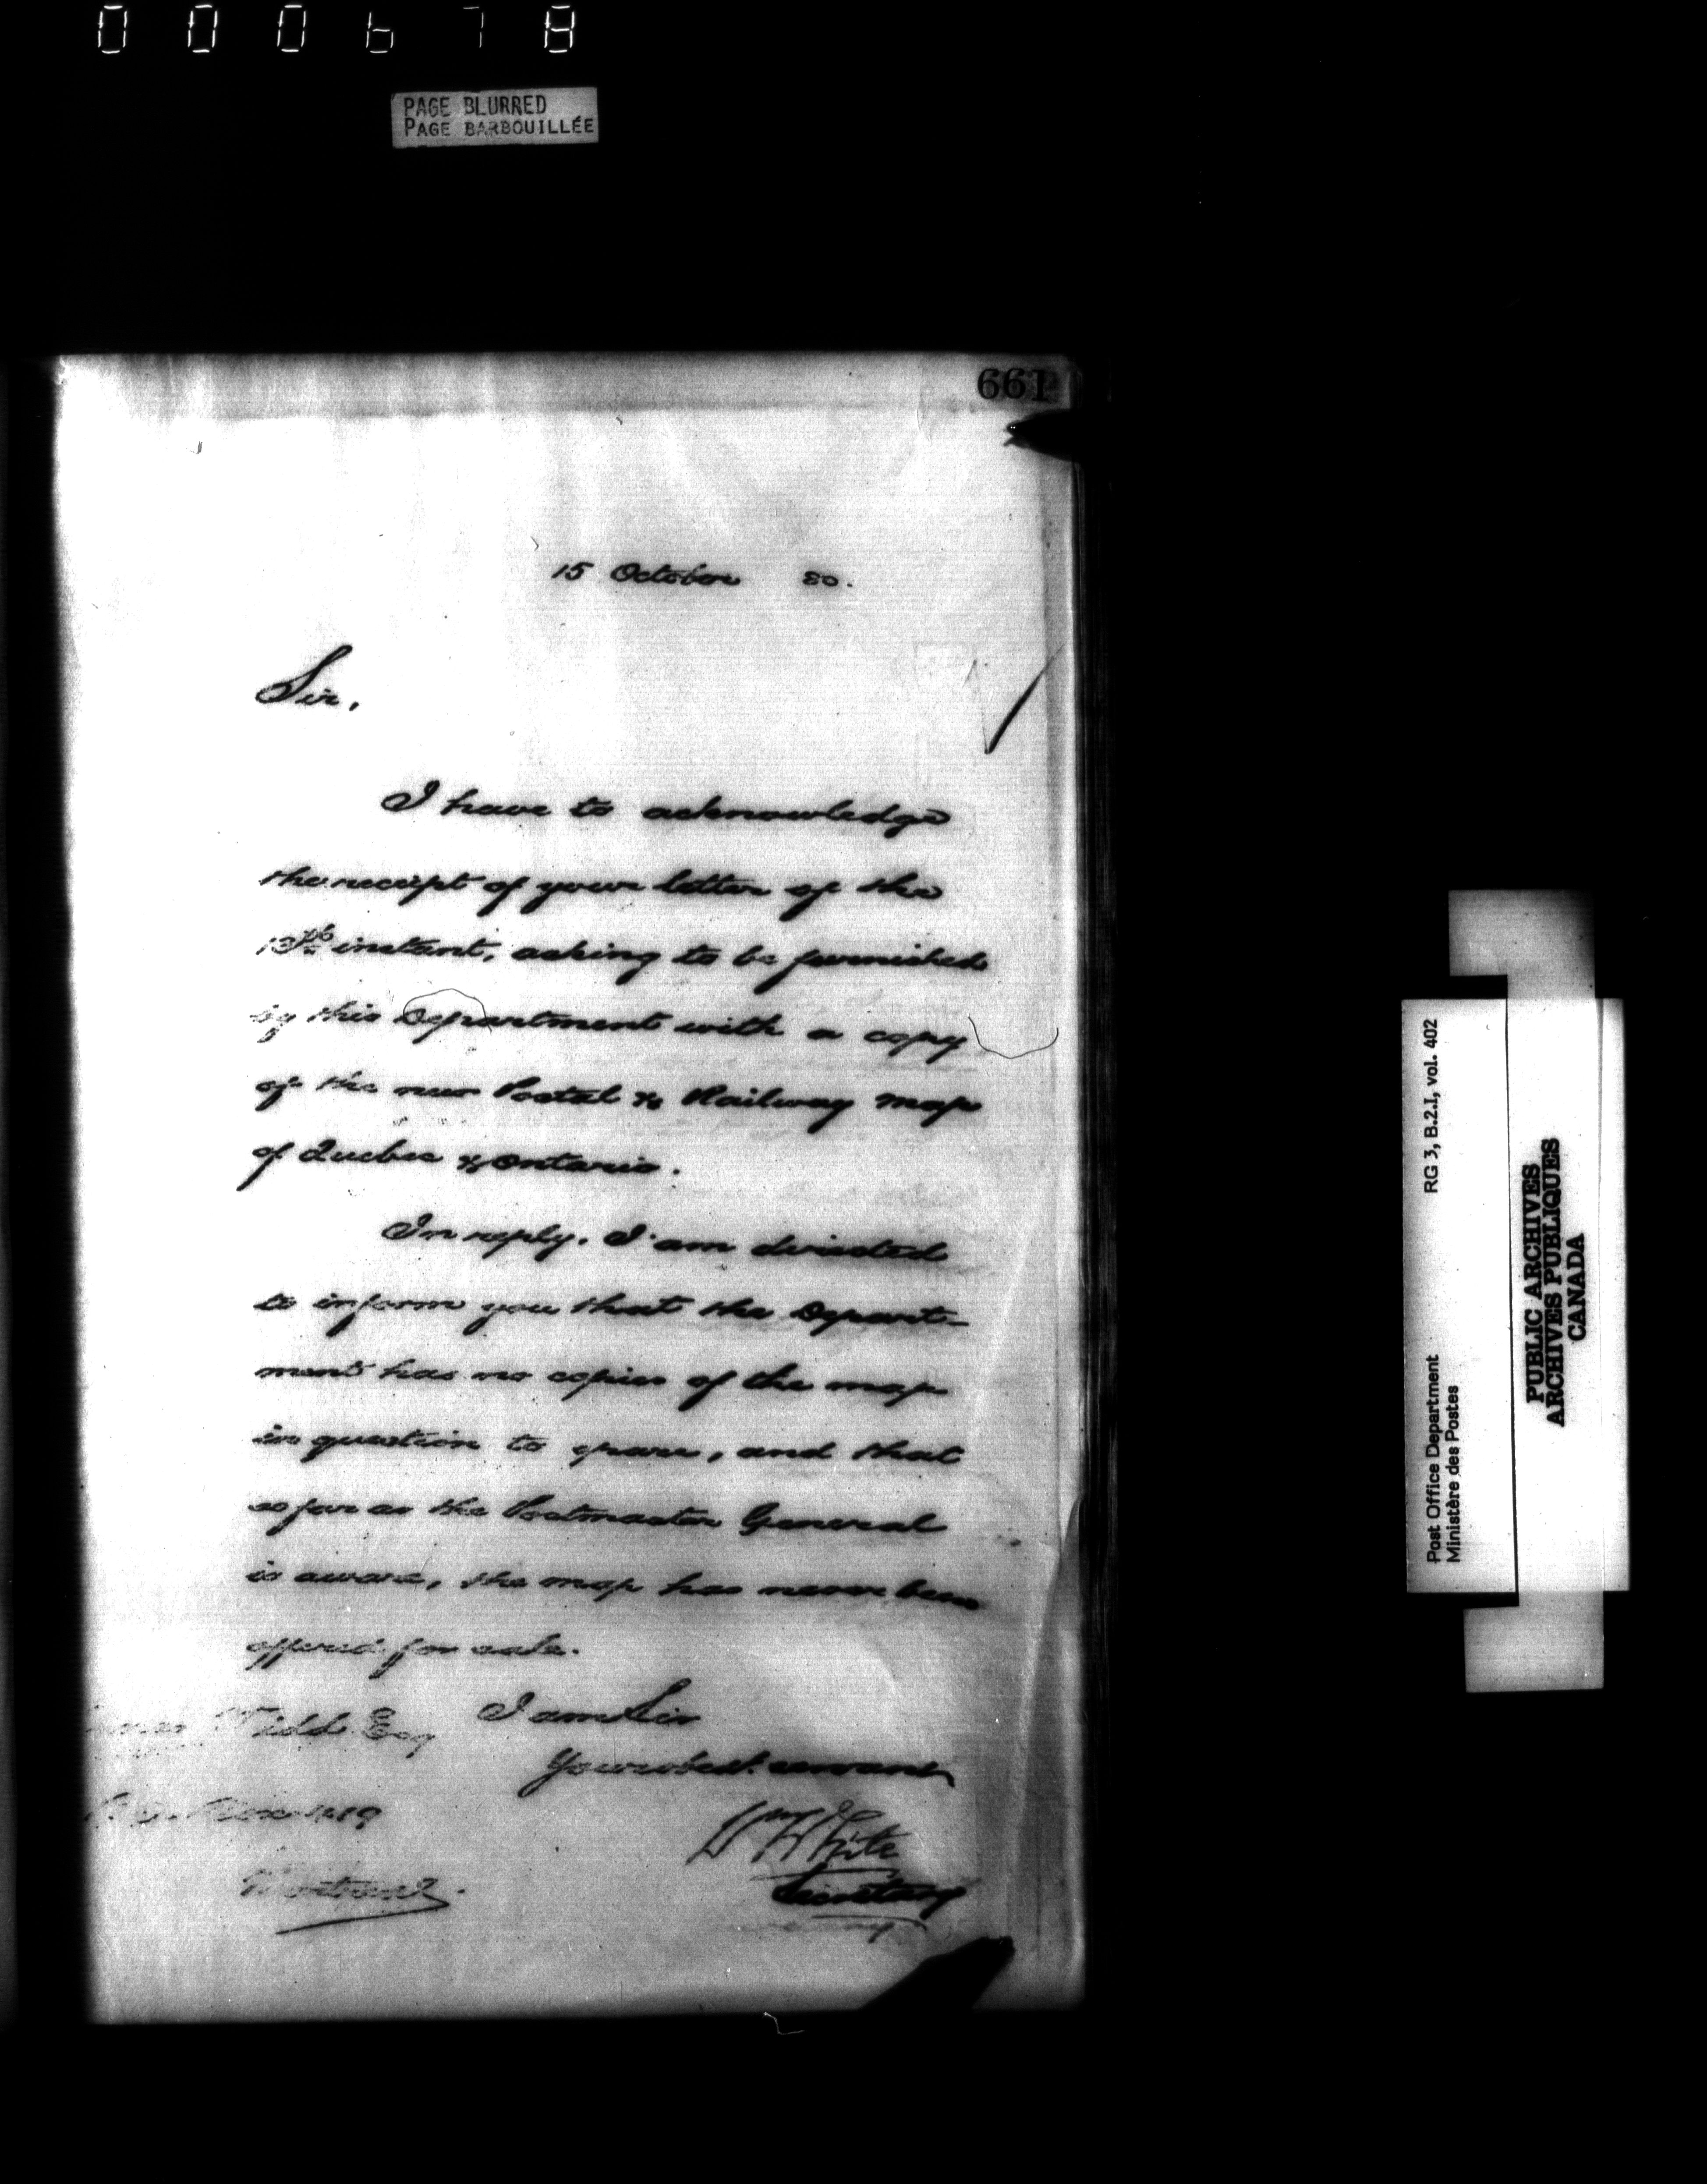 000678
PAGE BLURRED
PAGE BARBOUILLÉE
661
15 October 80.
Sir,
I have to acknowledge
the receipt of your letter of the
13th instant, asking to be furnished
by this Department with a copy
of the new Postal & Railway map
of Quebec & Ontario.
In reply, I am directed
to inform you that the Depart-
ment has no copies of the map
in question to spare, and that
so far as the Postmaster General
is aware, the map has never been
offered for sale.
I am Sir
Your obedt. servant
Tidd Esq
Wm White
Secretary
Montreal.
RG 3, B.2.I, vol. 402
Post Office Department
Ministère des Postes
PUBLIC ARCHIVES
ARCHIVES PUBLIQUES
CANADA